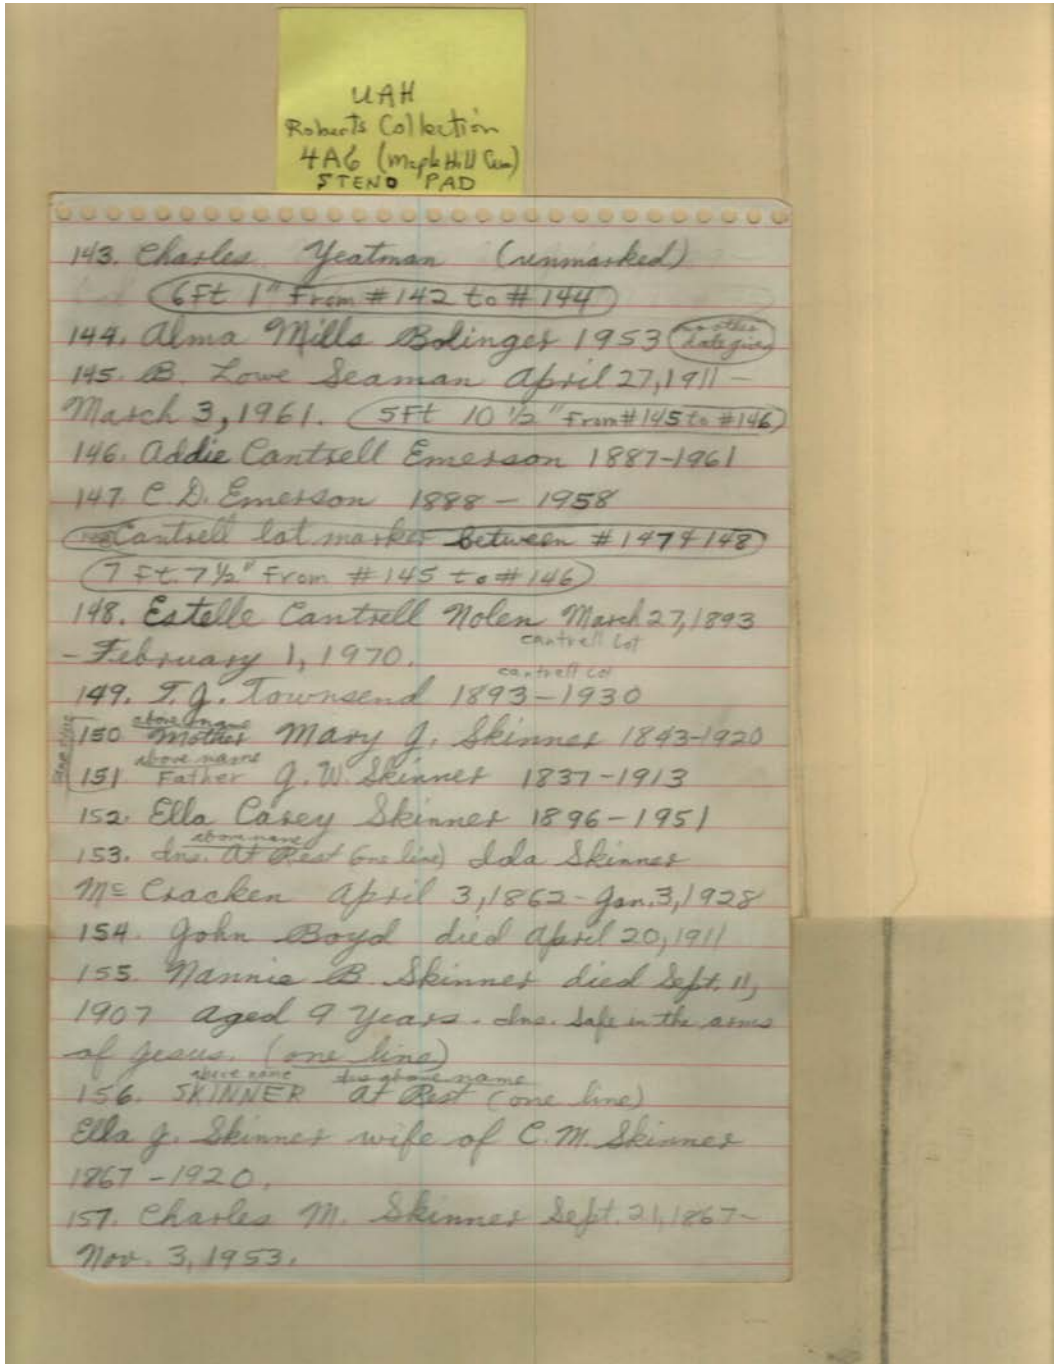 UAH
Roberts Collection
4A6 (Maple Hill Cem)
STENO PAD
143. Charles Yeatman (unmarked)
6Ft 1" From #142 to #144
144. Alma Mills Bolinger 1953 no other date given
145. B. Lowe Seaman April 27, 1911 –
March 3, 1961. 5Ft 10 1/2" From #145 to #146
146. Addie Cantrell Emerson 1887-1961
147. C.D. Emerson 1888 – 1958
Cantrell lot marker between #147 & 148
7 Ft. 7 1/2" From #145 to #146
148. Estelle Cantrell Nolen March 27, 1893
cantrell Lot
– February 1, 1970.
cantrell Lot
149. T.J. Townsend 1893–1930
above name
150 Mother Mary J. Skinner 1843-1920
above name
151 Father J.W. Skinner 1837-1913
152. Ella Casey Skinner 1896-1951
above name
153. Ins. At Rest (one line) Ida Skinner
McCracken April 3, 1862 - Jan. 3, 1928
154. John Boyd died April 20, 1911
155. Nannie B. Skinner died Sept. 11,
1907 aged 9 Years. Ins. Safe in the arms
of Jesus. (one line)
above name Ins above name
156. SKINNER At Rest (one line)
Ella J. Skinner wife of C.M. Skinner
1867 – 1920.
157. Charles M. Skinner Sept. 21, 1867–
Nov. 3, 1953.